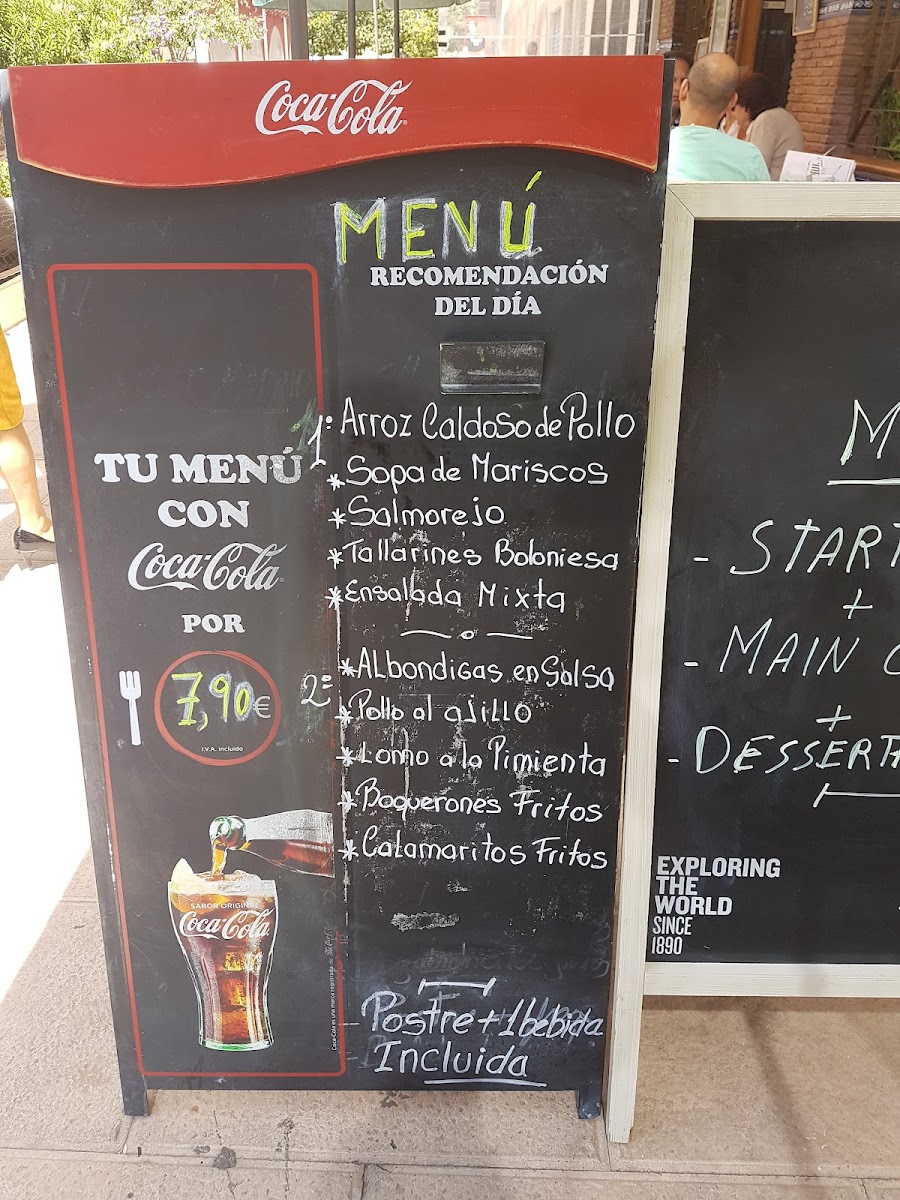 Coca-Cola
MENÚ
RECOMENDACIÓN
DEL DÍA
TU MENÚ
CON
Coca-Cola
POR
7,90€
I.V.A. incluido
SABOR ORIGINAL
Coca-Cola
1º Arroz Caldoso de Pollo
*Sopa de Mariscos
*Salmorejo
*Tallarines Boloniesa
*Ensalada Mixta
2º *Albondigas en Salsa
*Pollo al ajillo
*Lomo a la Pimienta
*Boquerones Fritos
*Calamaritos Fritos
Postre + 1 bebida
Incluida
M
- START
+
- MAIN C
+
- DESSERT
EXPLORING
THE
WORLD
SINCE
1890